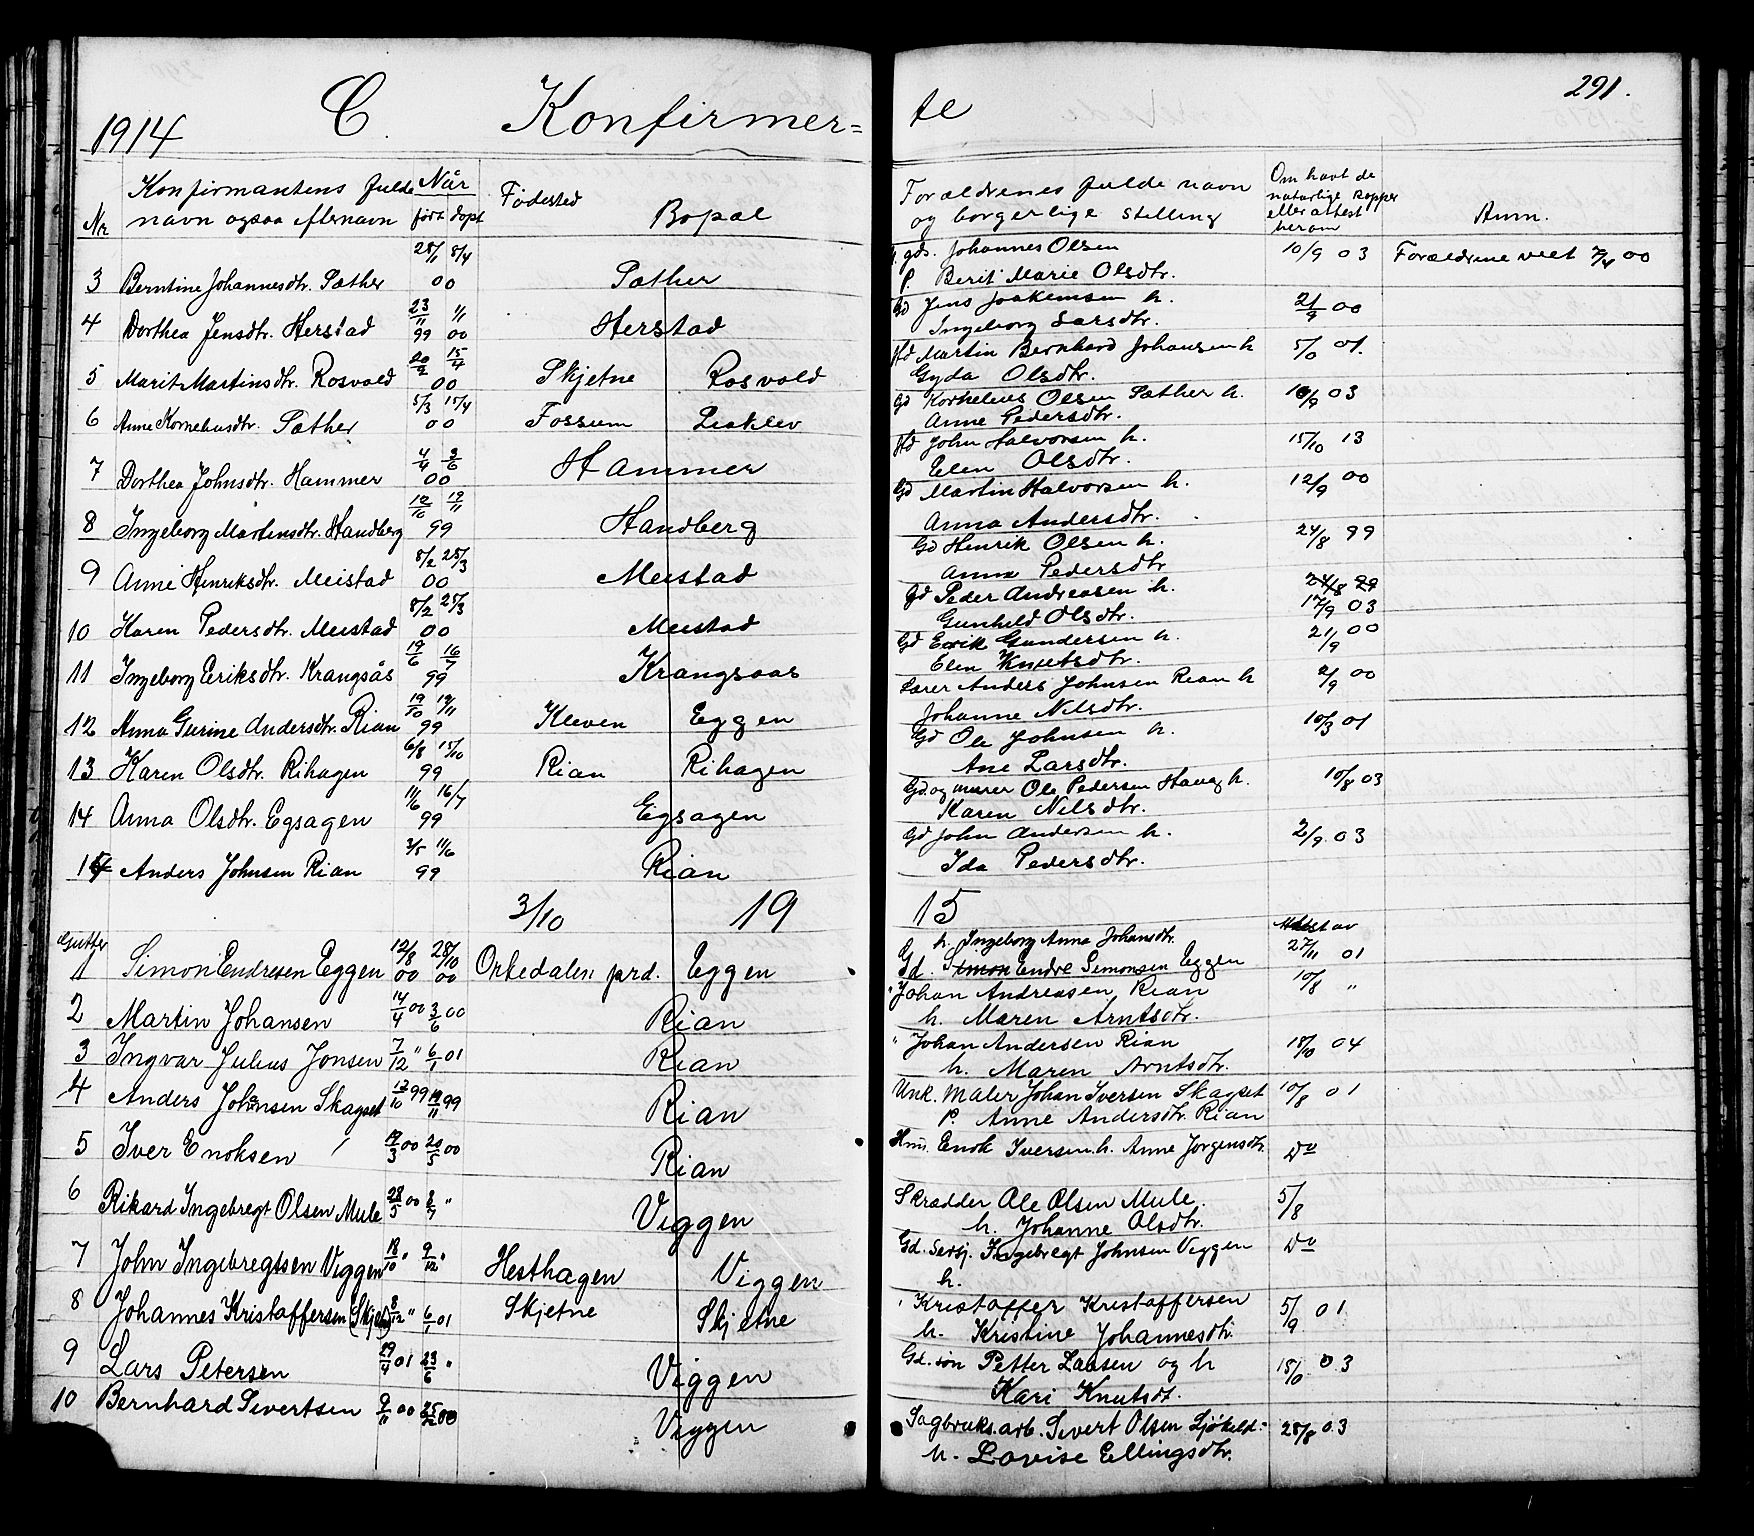 1914 C. Konfirmer= te 291.
Nr Konfirmantens fulde navn ogsaa efternavn Når født døpt Fødested Bopæl Forældrenes fulde navn og borgerlige stilling Om havt de naturlige kopper eller attest herom Anm.
3 Berntine Johannesdtr. Sæther 28/1 8/4 00 Sæther gds. Johannes Olsen 10/9 03 Forældrene viet 7/4 00
p. Berit Marie Olsdtr.
4 Dorthea Jensdtr. Herstad 23/11 99 1/1 00 Herstad Gd Jens Joakimsen h. 2/9 00
Ingeborg Larsdtr.
5 Marit Martinsdtr. Rosvold 20/2 15/4 00 Skjetne Rosvold Hd Martin Bernhard Johansen h 01.
Gyda Olsdtr.
6 Anne Korneliusdtr. Sæther 5/3 15/4 00 Fossum Lieklev Gd Kornelius Olsen Sæther h. 10/9 03
Anne Pedersdtr.
7 Dorthea Johnsdtr. Hammer 4/4 3/6 00 Hammer Hd John Halvorsen h. 15/10 13
Elen Olsdtr.
8 Ingeborg Martinsdtr. Handberg 12/10 12/11 99 Handberg Gd Martin Halvorsen h. 12/9 00
Anna Andersdtr.
9 Anne Henriksdtr. Meistad 8/2 25/3 00 Meistad Gd Henrik Olsen h. 24/8 99
Anne Pedersdtr
10 Karen Pedersdtr. Meistad 8/2 25/3 00 Meistad Gd Peder Andreasen h. 24/8 99 17/9 03
Gunhild Olsdtr.
11 Ingeborg Eriksdtr. Krangsås 19/6 16/7 99 Krangsaas Gd Erik Gundersen h. 21/9 00
Elen Knutsdtr.
12 Anna Gurine Andersdtr. Rian 19/10 19/11 99 Kleven Eggen Lærer Anders Johnsen Rian h 2/9 00
Johanne Nilsdtr.
13 Karen Olsdtr. Rihagen 6/8 15/10 99 Rian Rihagen Gd Ole Johnsen h. 10/3 01
Ane Larsdtr.
14 Anna Olsdtr. Egsagen 11/6 16/7 99 Egsagen Gd. og murer Ole Pedersen Haug h. 10/8 03
Karen Nilsdtr.
15 Anders Johnsen Rian 3/5 11/6 99 Rian Gd John Andersen h. 2/9 03
Ida Pedersdtr.
3/10 19 15
Gutter
h. Ingeborg Anna Johansdtr. Attest av
1 Simon Endresen Eggen 12/8 00 28/10 00 Orkedalen prd. Eggen Gd. Simon Endre Simonsen Eggen 27/11 01
2 Martin Johansen 14/4 00 3/6 00 Rian " Johan Andreasen Rian 10/8 "
h. Maren Arntsdtr.
3 Ingvar Julius Jonsen 7/12 " 6/1 01 Rian " Johan Andersen Rian 18/10 04
h. Maren Arntsdtr.
4 Anders Johansen Skagset 12/10 99 19/11 99 Rian Unk. Maler Johan Iversen Skagset 10/8 01
p. Anne Andersdtr. Rian
5 Iver Enoksen 19/3 00 20/5 00 Rian Hmd. Enok Iversen h. Anne Jørgensdtr. Do
6 Rikard Ingebregt Olsen Mule 28/5 00 8/7 " Viggen Skrædder Ole Olsen Mule. 5/8
h. Johanne Olsdtr.
7 John Ingebregtsen Viggen 18/10 " 9/12 " Hesthagen Viggen Gd. Sersj. Ingebregt Johnsen Viggen Do
h.
8 Johannes Kristoffersen (Skjet) 8/12 " 6/1 01 Skjetne Skjetne " Kristoffer Kristoffersen 5/9 01
h. Kristine Johannesdtr.
9 Lars Petersen 29/4 01 23/6 " Viggen Gd. søn Petter Larsen og h 03
Kari Knutsdt.
10 Bernhard Sivertsen 9/11 00 25/12 00 Viggen Sagbruks.arb. Sivert Olsen Sjøkeld- 28/8 03
h. Lovise Ellingsdtr.